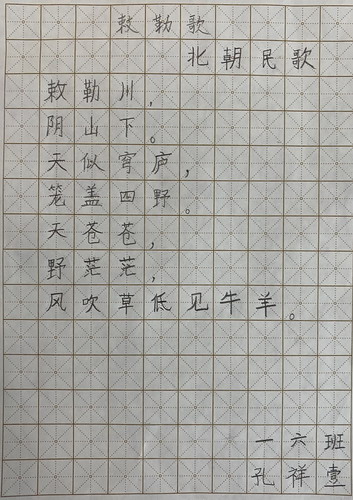 敕勒歌
北朝民歌
敕勒川，
阴山下。
天似穹庐，
笼盖四野。
天苍苍，
野茫茫，
风吹草低见牛羊。
一六班
孔祥壹